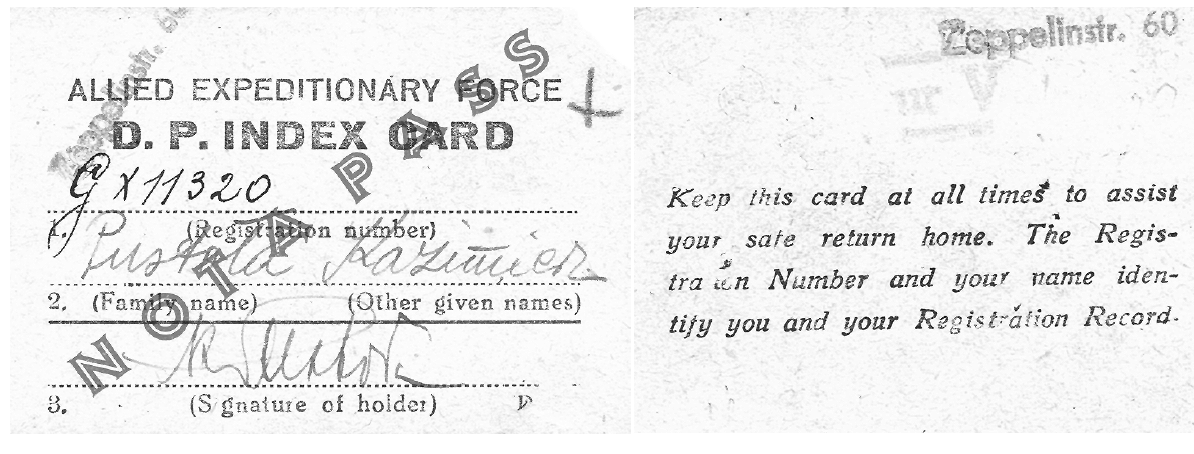 Zeppelinstr. 60
ALLIED EXPEDITIONARY FORCE
D. P. INDEX CARD
G X11320
1. (Registration number)
Pustoła Kazimierz
2. (Family name) (Other given names)
3. (Signature of holder)
NOT A PASS
Zeppelinstr. 60
Keep this card at all times to assist
your safe return home. The Regis-
tration Number and your name iden-
tify you and your Registration Record.